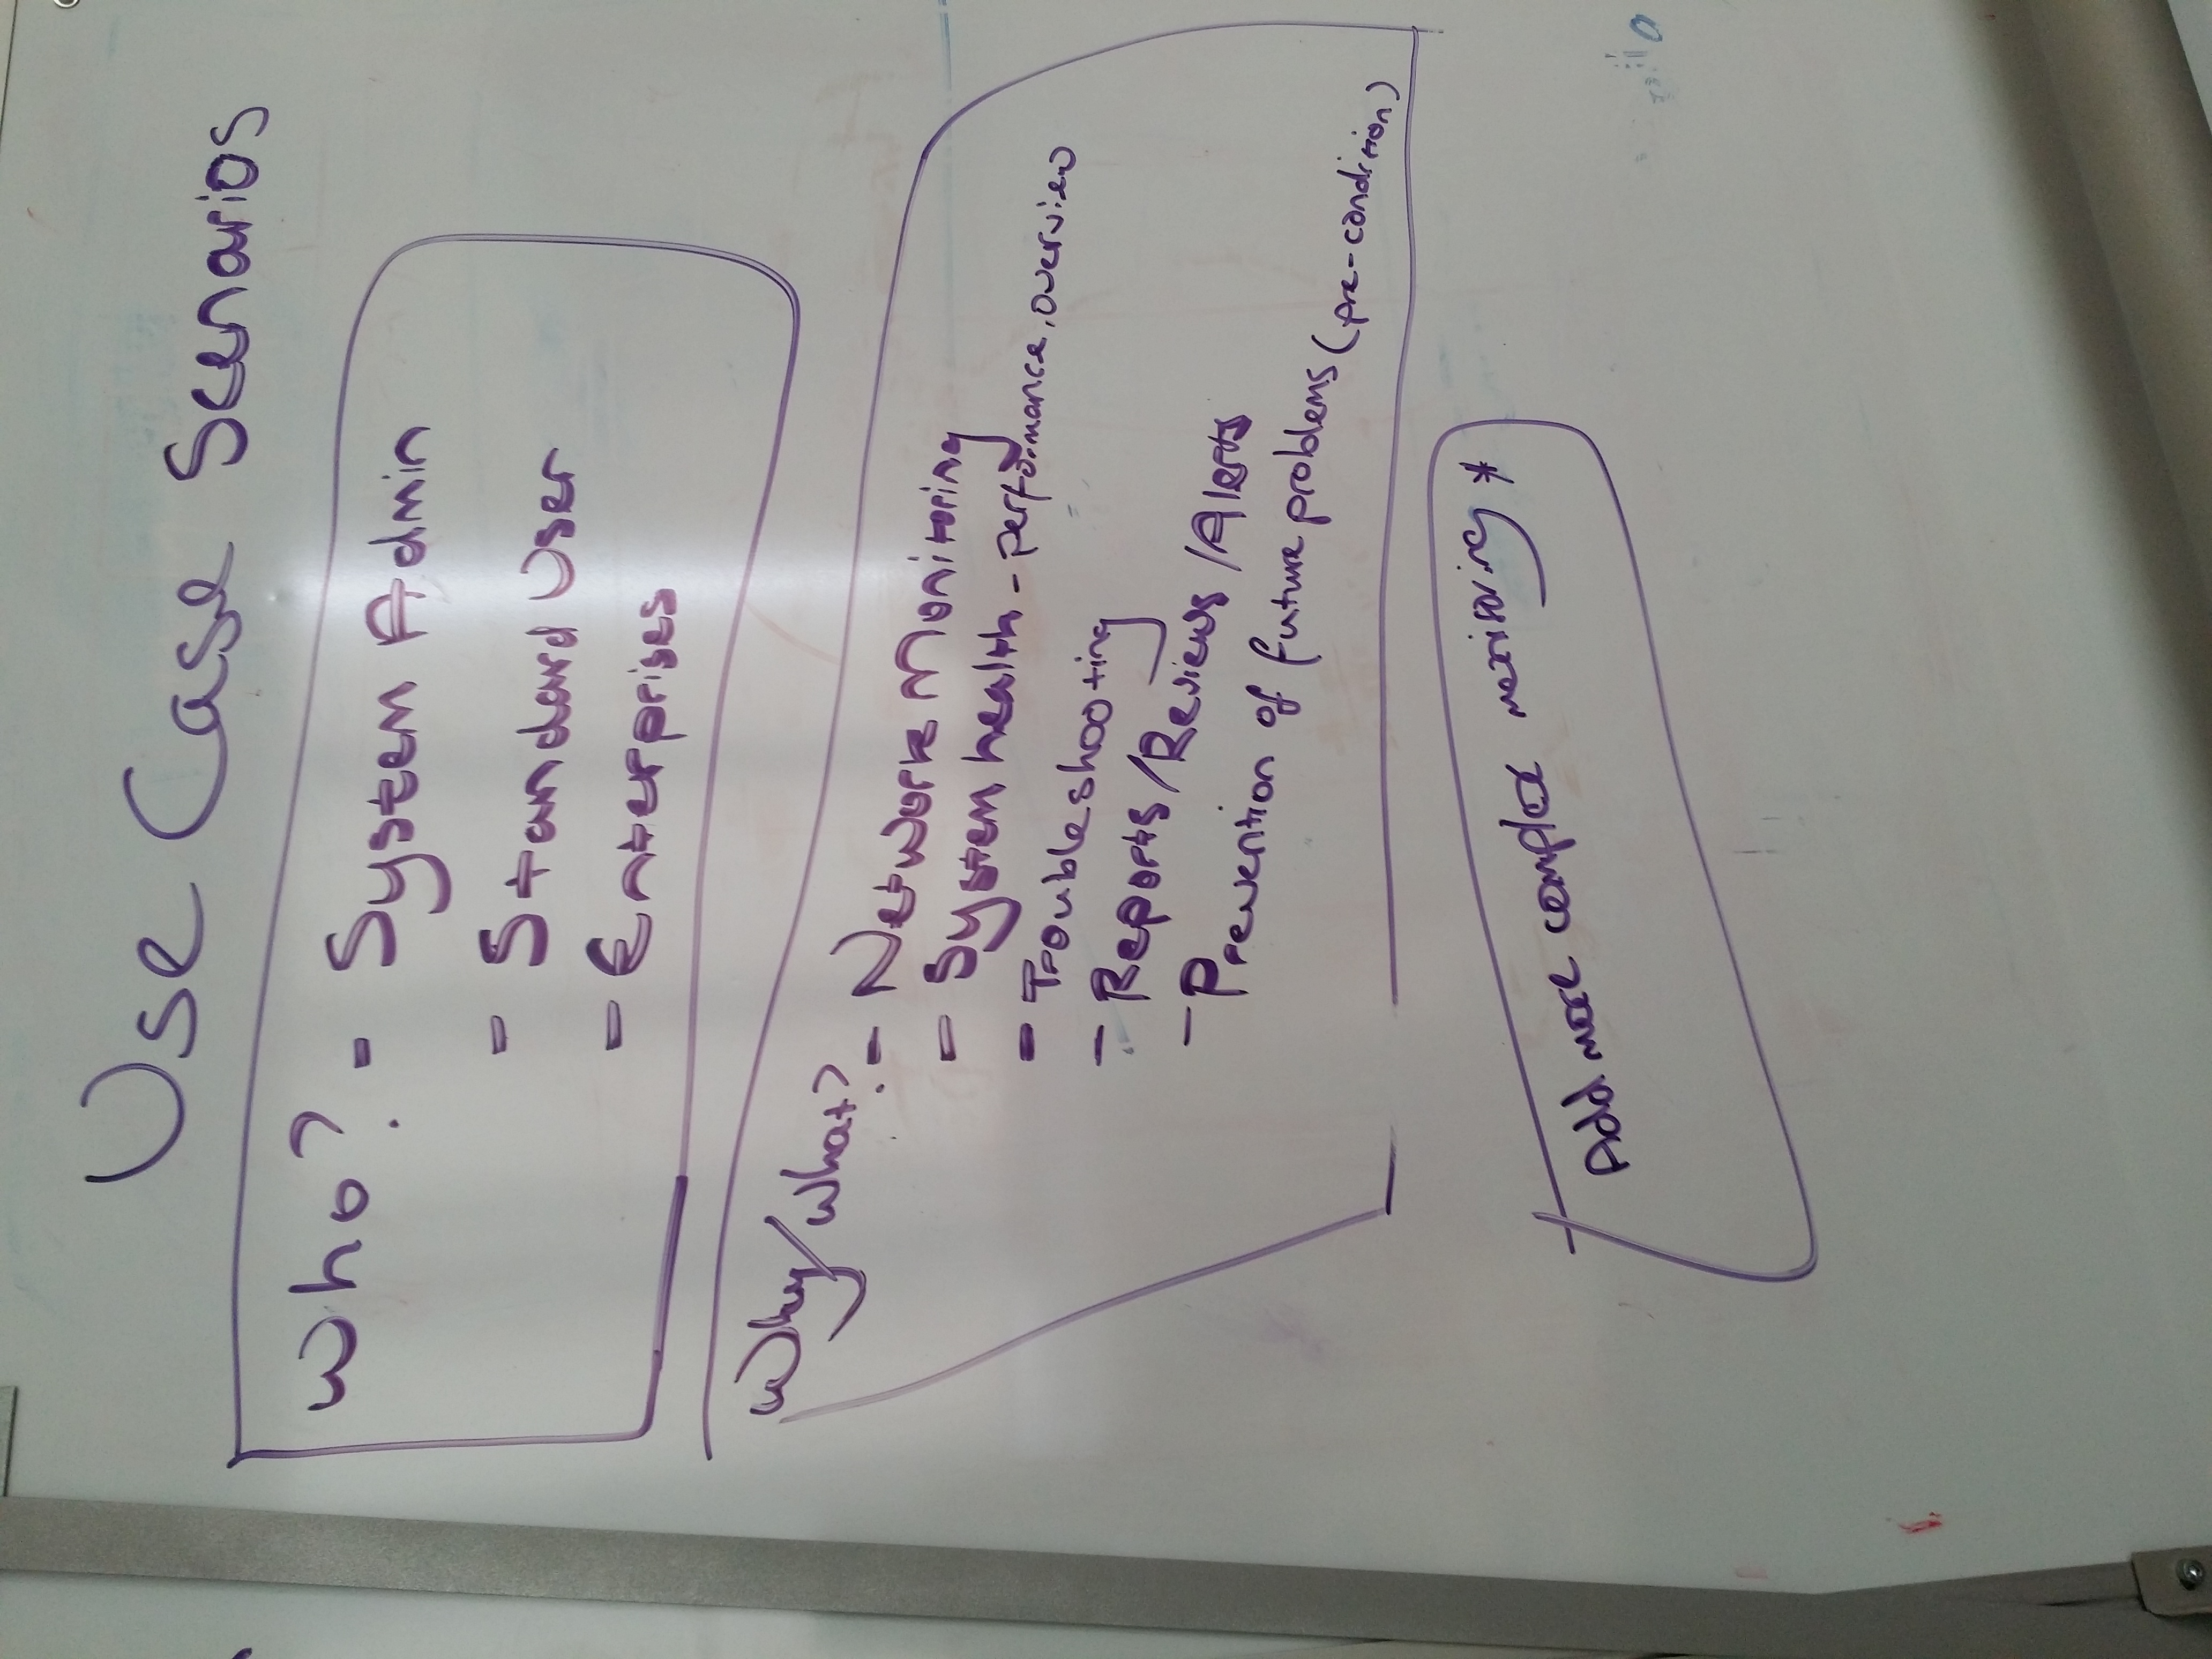 Use Case Scenarios
Who? - System Admin
- Standard User
- Enterprises
Why/What? - Network Monitoring
- System health - performance, overview
- Troubleshooting
- Reports/Reviews/Alerts
- Prevention of future problems (pre-condition)
Add more complex monitoring *